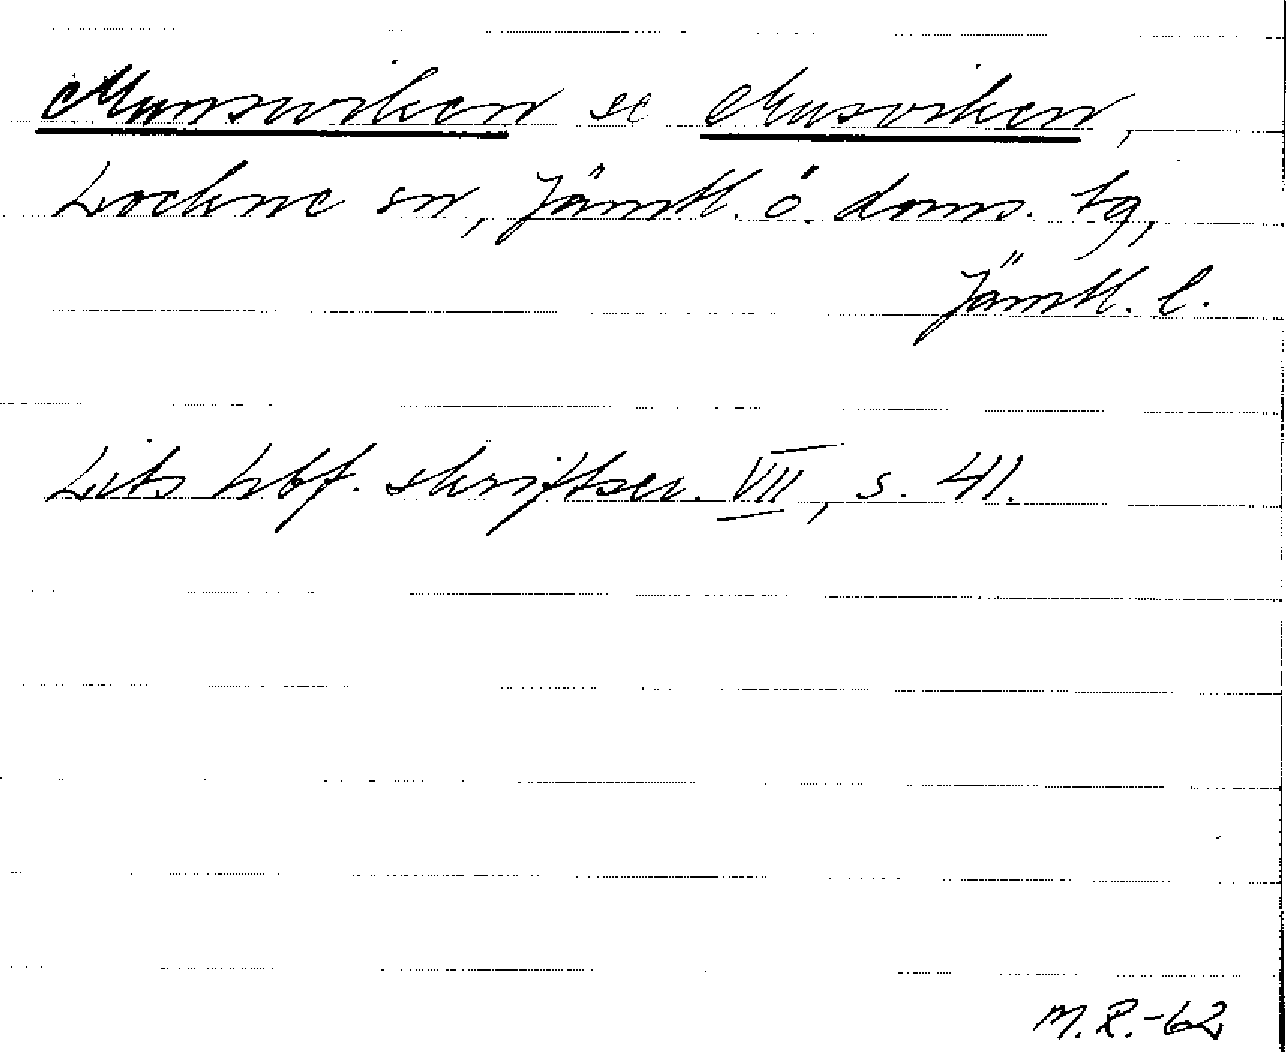 Munsviken se Musviken,
Lockne sn, Jämtl. ö. doms. tg,
Jämtl. l.
Lits hbf. skriftser. VII, s. 41.
M.R.-62